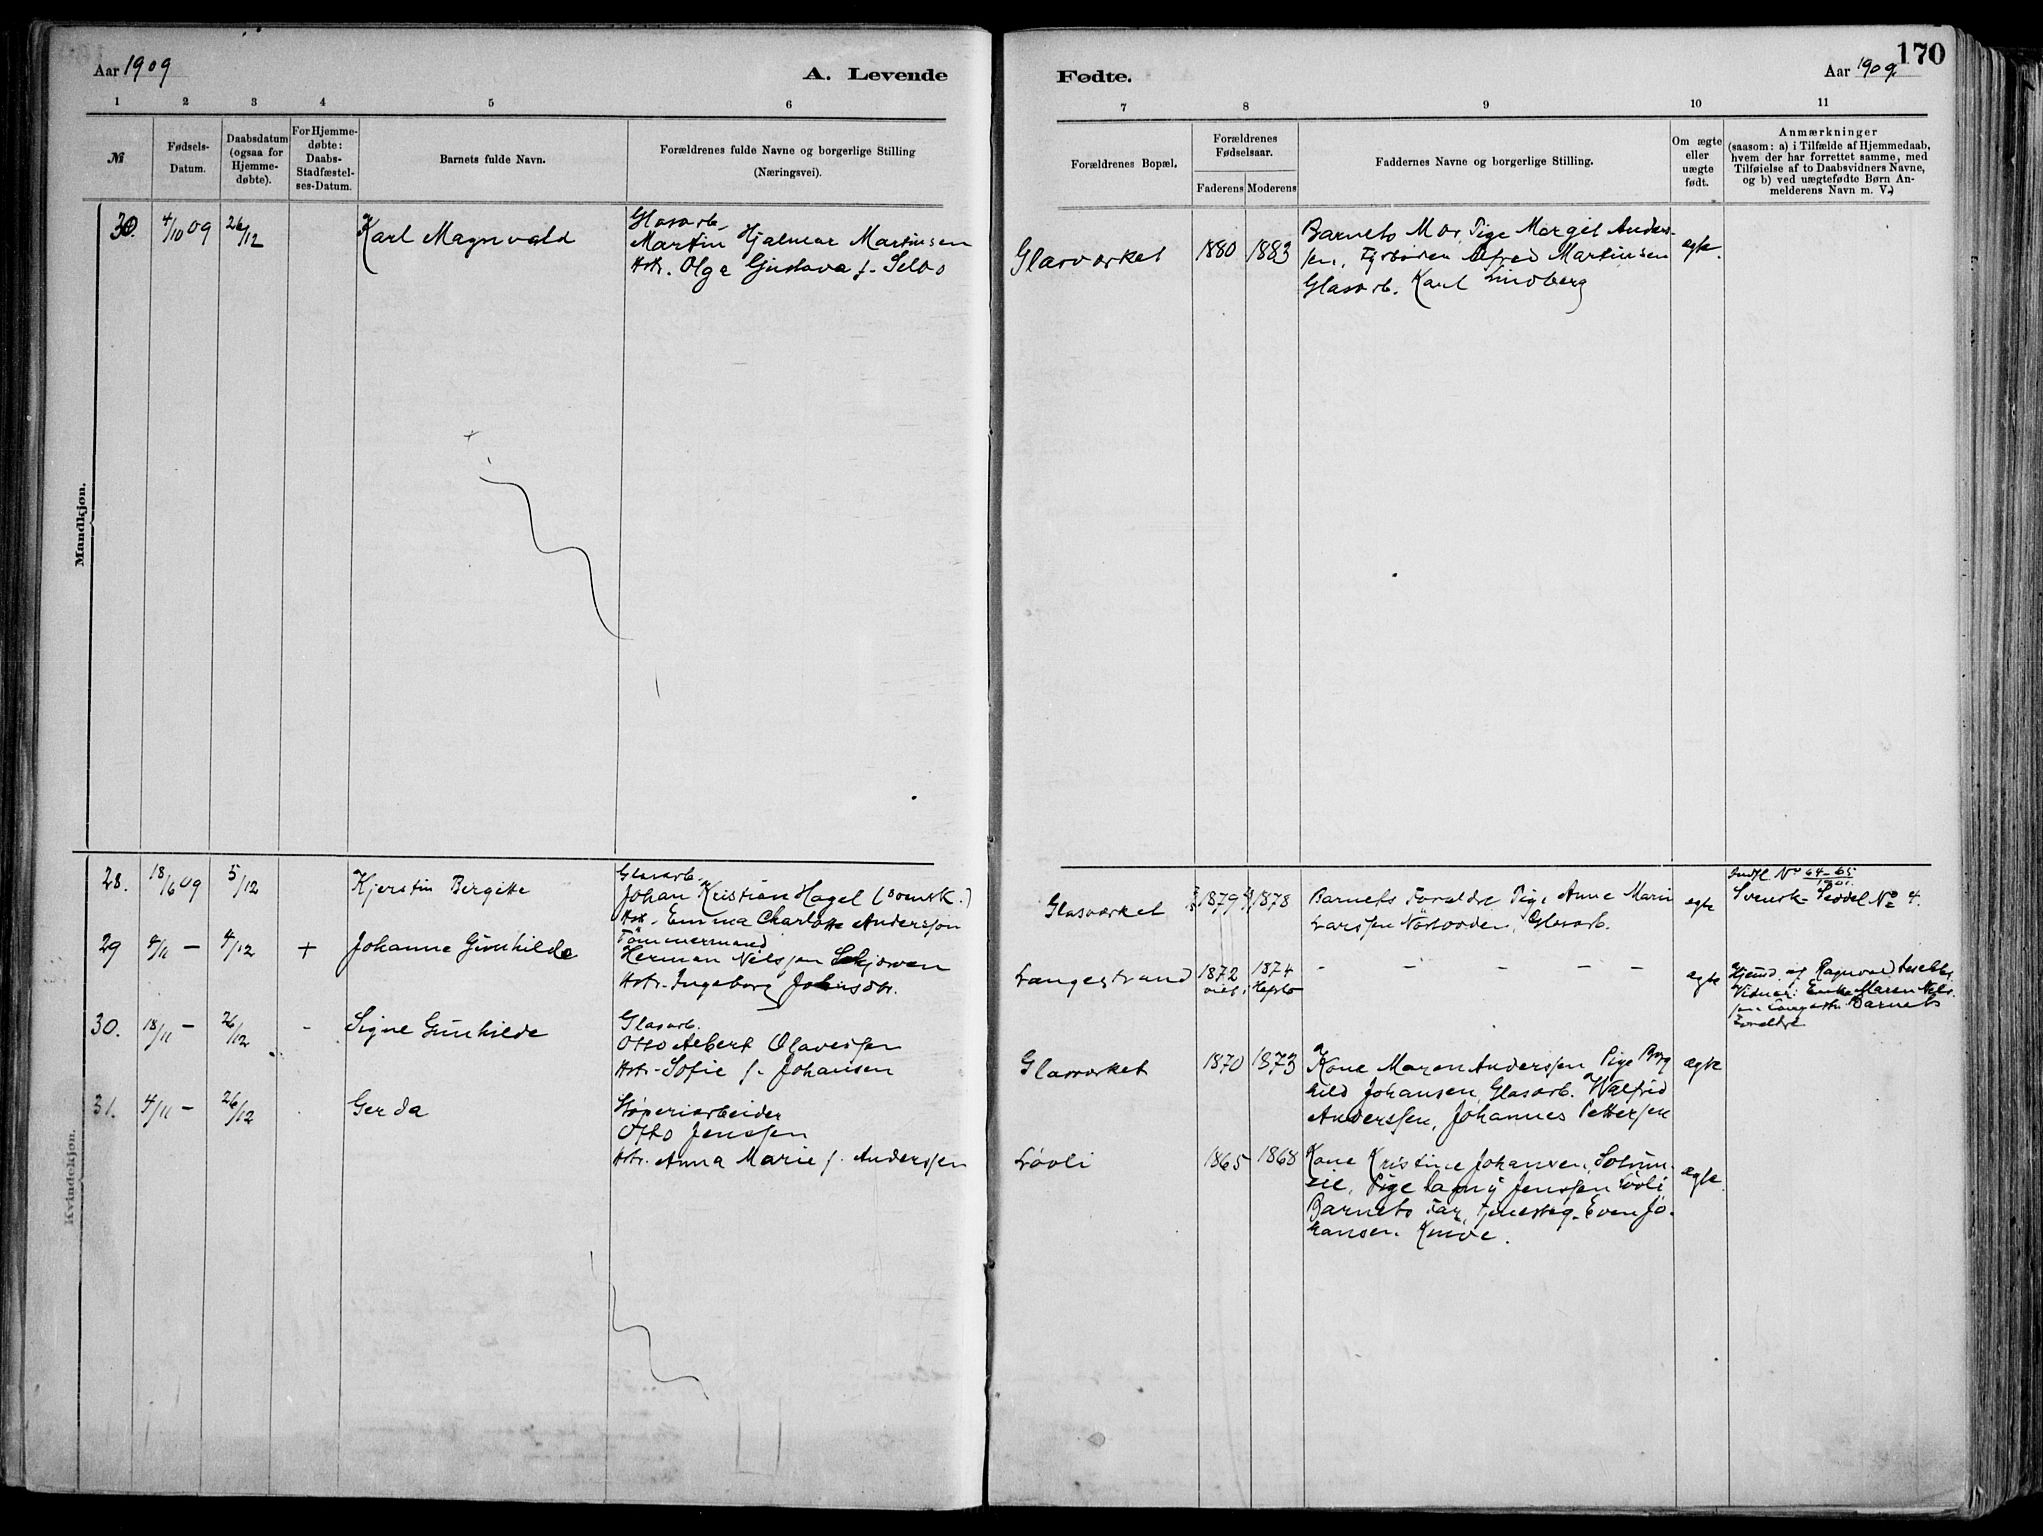 Aar 1909
A. Levende
Fødte.
Aar 1909.
170
1 2 3 4 5 6
7 8 9 10 11
№
Fødsels-
Datum.
Daabsdatum
(ogsaa for
Hjemme-
døbte).
For Hjemme-
døbte:
Daabs-
Stadfæstel-
ses-Datum.
Barnets fulde Navn.
Forældrenes fulde Navne og borgerlige Stilling
(Næringsvei).
Forældrenes Bopæl.
Forældrenes
Fødselsaar.
Faderens Moderens
Faddernes Navne og borgerlige Stilling.
Om ægte
eller
uægte
født.
Anmærkninger
(saasom: a) i Tilfælde af Hjemmedaab,
hvem der har forrettet samme, med
Tilføielse af to Daabsvidners Navne,
og b) ved uægtefødte Børn An-
melderens Navn m. V.)
Mandkjøn.
30.
4/10 09
26/12
Karl Magnvald
Glasarb.
Martin Hjalmar Martinsen
Hstr. Olga Gustava f.
Glasværket
1880
1883
Barnets Mor, Pige Margit Anders-
sen, Alfred Martinsen
Glasarb. Karl Lindberg
ægte.
Kvindekjøn.
28.
18/6 09
5/12
Kjerstin Bergitte
Glasarb.
Johan Kristian Hagel (svensk.)
Hstr. Emma Charlotte Andersson
Glasværket
1879
1878
Barnets Forældre, Pige Anne Marie
Larssen, Glasarb.
ægte
Indfl. No 64-65
1901.
Svensk Seddel No 4.
29
4/11 -
4/12
+
Johanne Gunhilde
Tømmermand
Herman Nilssen
Hstr. Ingeborg
Langestrand
1872
1874
- - - - -
ægte
Hjemd. af Ragnvald
Vidner: Enke Maren Nils-
sen Barnets
Forældre
30.
18/11 -
26/12
-
Signe Gunhilde
Glasarb.
Otto Albert Olavessen
Hstr. Sofie f. Johansen
Glasværket
1870
1873
Kone Maren Anderssen, Pige Borg
hild Johansen, Glasarb. Walfrid
Anderssen, Johannes Pettersen
ægte
31.
4/11 -
26/12
Gerda
Støperiarbeider
Otto Jenssen
Hstr. Anna Marie f. Anderssen
Løvli
1865
1868
Kone Kristine Johansen,
Pige Dagny Jenssen Løvli
Barnets Far, Even Jo-
hansen.
ægte.